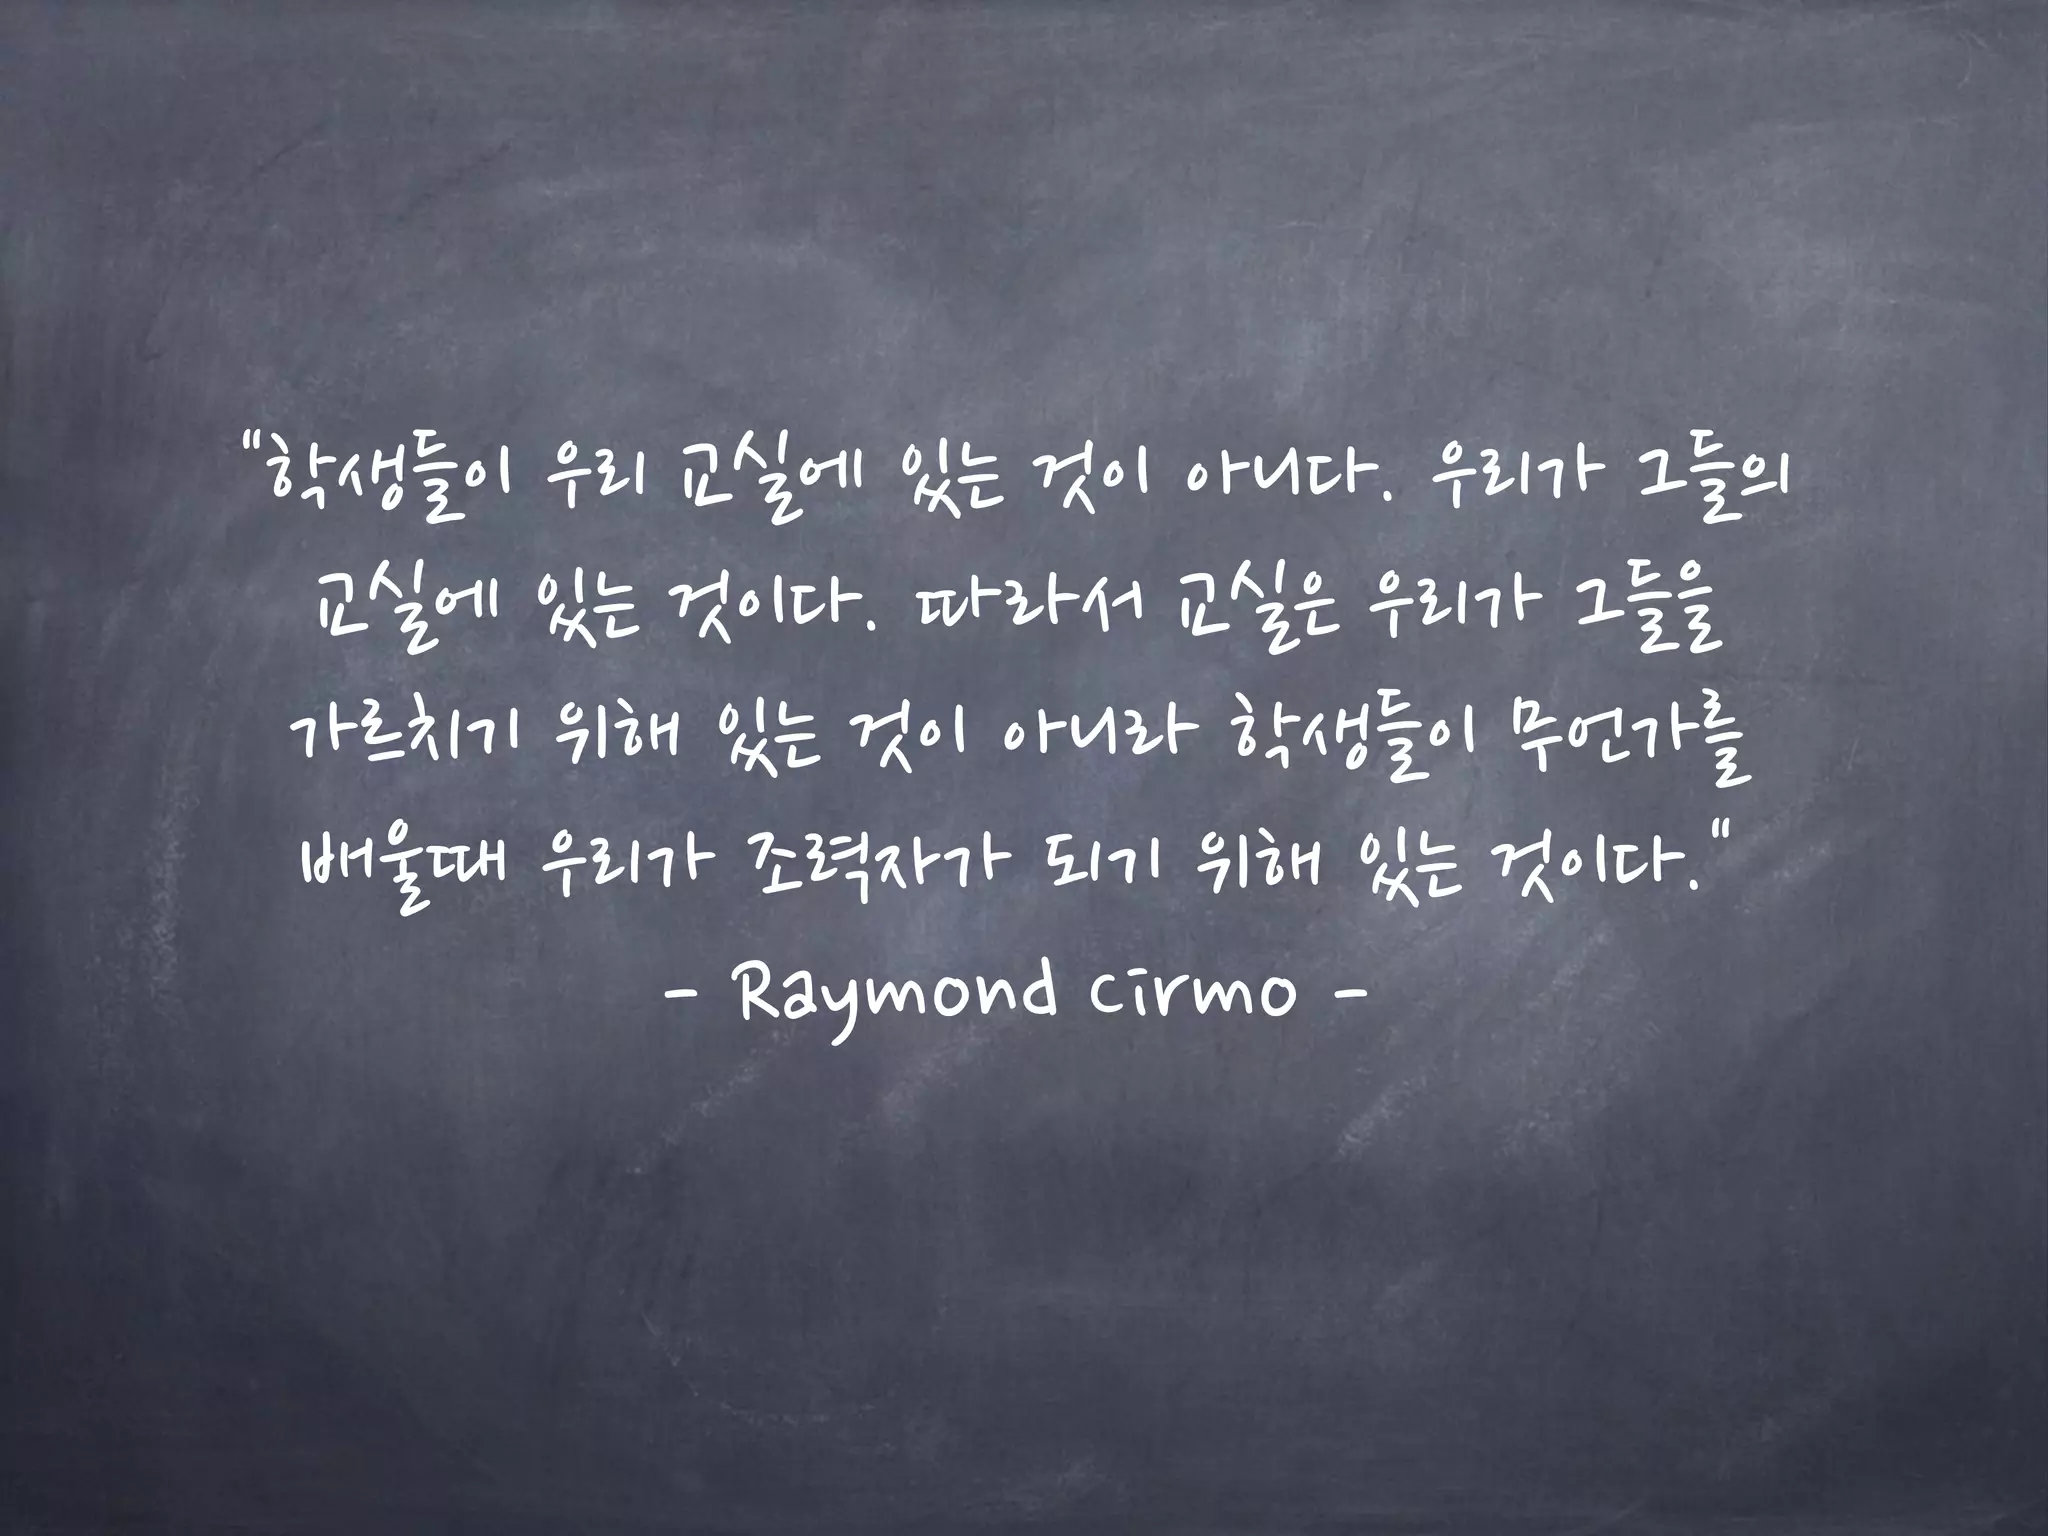 "학생들이 우리 교실에 있는 것이 아니다. 우리가 그들의
교실에 있는 것이다. 따라서 교실은 우리가 그들을
가르치기 위해 있는 것이 아니라 학생들이 무언가를
배울때 우리가 조력자가 되기 위해 있는 것이다."
- Raymond cirmo -